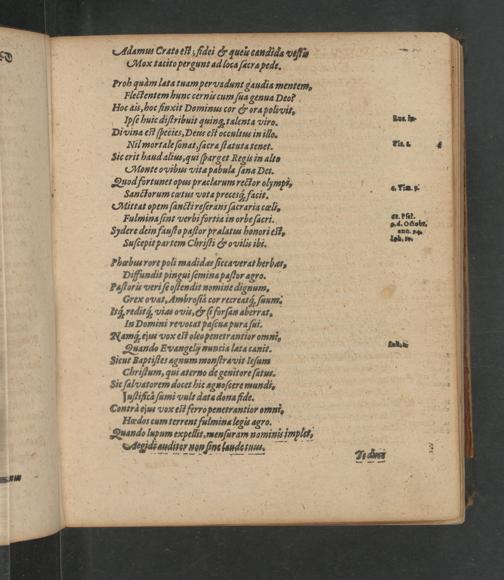 Adamus Crato est; fidei & quem candida vestis
Mox tacito pergunt ad loca sacra pede.
Proh quàm lata tuam pervadunt gaudia mentem,
Flectentem hunc cernis cum sua genua Deo?
Hoc ais, hoc finxit Dominus cor & ora polivit,
Ipse huic distribuit quinq, talenta viro.
Divina est species, Deus est occultus in illo.
Nil mortale sonat, sacra statuta tenet.
Sic erit haud alius, qui sparget Regis in alto
Monte ovibus vita pabula sana Dei.
Quod fortunet opus praeclarum rector olympi,
Sanctorum cœtus vota precesq, facit.
Mittat opem sancti reserans sacraria cœli,
Fulmina sint verbi fortia in orbe sacri.
Sydere dein fausto pastor pralatus honori est,
Suscepit partem Christi & ovilis ibi.
Phœbus rore poli madidas siccaverat herbas,
Diffundit pingui semina pastor agro.
Pastoris veri se ostendit nomine dignum,
Grex ovat, Ambrosiâ cor recreatq, suum.
Itq, reditq, vias ovis, & si forsan aberrat,
In Domini revocat pascua pura sui.
Namq, ejus vox est oleo penetrantior omni,
Quando Evangelij nuncia lata canit.
Sicut Baptistes agnum monstravit Iesum
Christum, qui aterno de genitore satus.
Sic salvatorem docet hic agnoscere mundi,
Iustificâ sumi vult data dona fide.
Contrà ejus vox est ferro penetrantior omni,
Hœdos cum terrent fulmina legis agro.
Quando lupum expellis, mensuram nominis imples,
Aegidî auditor non sine laude tuus.